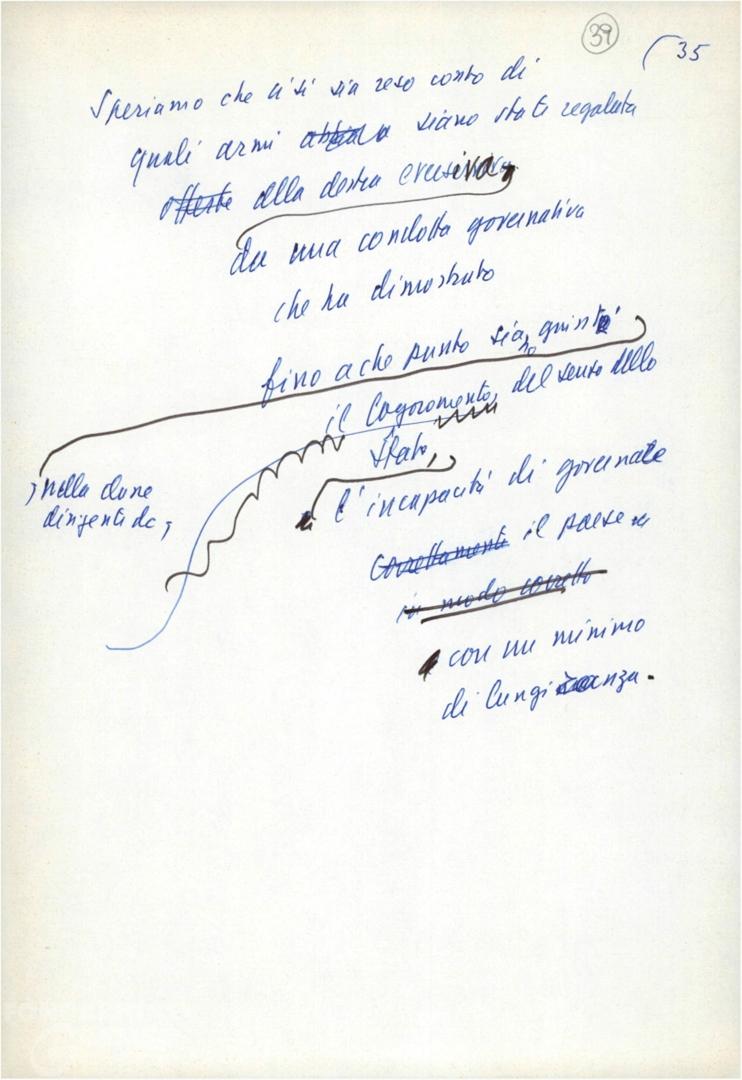 39
35
Speriamo che ci si sia reso conto di
quali armi siano state regalata
offerte alla destra eversiva,
da una condotta governativa
che ha dimostrato
fino a che punto siano giunti
il logoramento, del senso dello
Stato,
, nella classe
dirigente dc,
l'incapacità di governare
correttamente il paese
in modo corretto
con un minimo
di lungi anza.